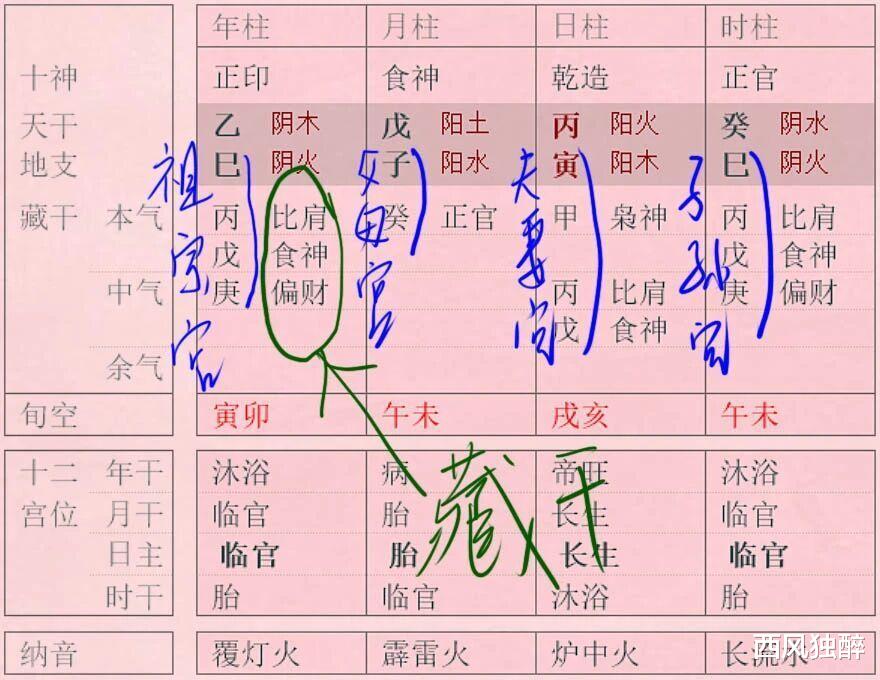 年柱 月柱 日柱 时柱
十神 正印 食神 乾造 正官
天干 乙 阴木 戊 阳土 丙 阳火 癸 阴水
地支 巳 阴火 子 阳水 寅 阳木 巳 阴火
藏干 本气 丙 比肩 癸 正官 甲 枭神 丙 比肩
戊 食神 戊 食神
中气 庚 偏财 丙 比肩 庚 偏财
戊 食神
余气
旬空 寅卯 午未 戌亥 午未
十二 年干 沐浴 病 帝旺 沐浴
宫位 月干 临官 胎 长生 临官
日主 临官 胎 长生 临官
时干 胎 临官 沐浴 胎
纳音 覆灯火 霹雷火 炉中火 长流水
祖宗宫
父母宫
夫妻宫
子孙宫
藏干
西风独醉